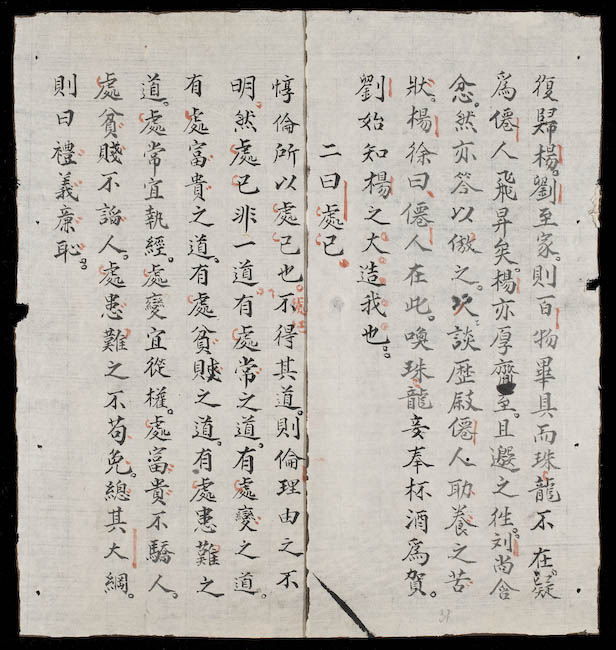 復歸楊。劉至家。則百物畢具而珠龍不在。疑
爲僊人飛昇矣。楊亦厚齎至。且邀之徃。刘尚含
忿。然亦答以傲之。次談歷敍僊人助養之苦
狀。楊徐曰。僊人在此。喚珠龍妾奉杯酒爲賀。
劉始知楊之大造我也。
二曰處己。
惇倫所以處己也。不得其道。則倫理由之不
明。然處己非一道。有處常之道。有處變之道。
有處富貴之道。有處貧賤之道。有處患難之
道。處常宜執經。處變宜從權。處富貴不驕人。
處貧賤不諂人。處患難之不苟免。總其大綱。
則曰禮義廉恥。
31